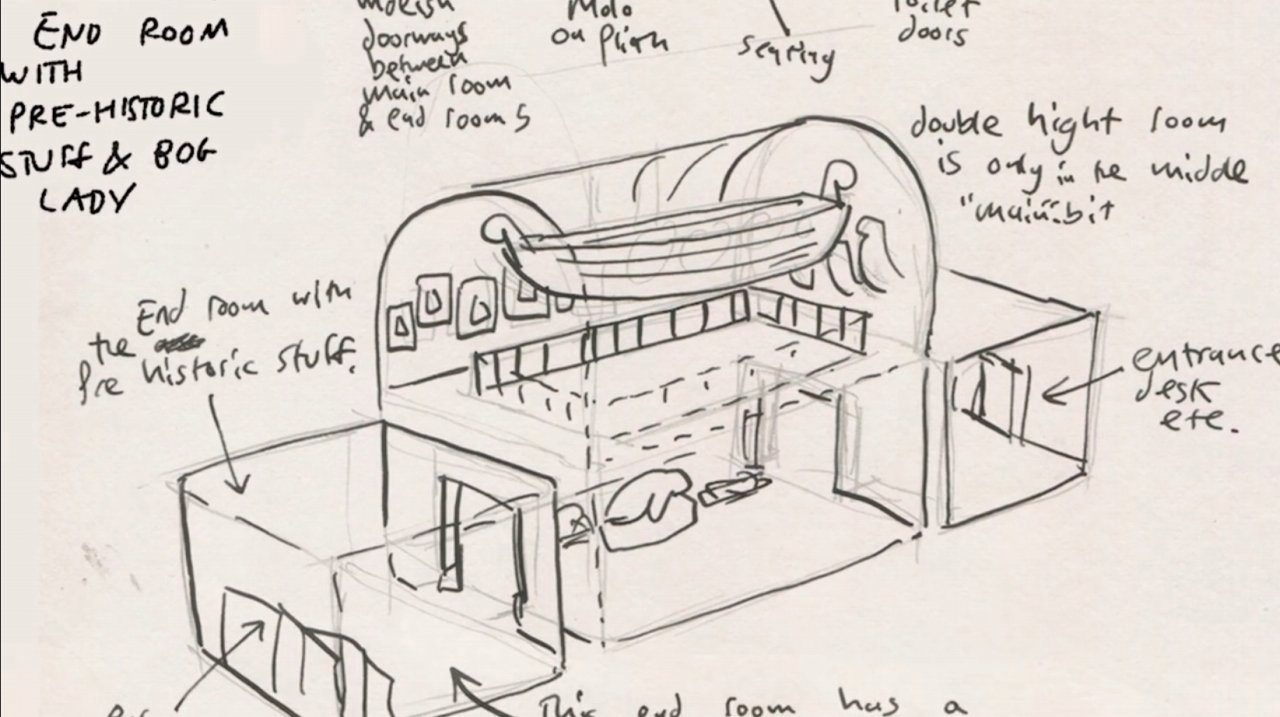 END ROOM
WITH
PRE-HISTORIC
STUFF & BOG
LADY
doorways
between
main room
& end rooms
on plinth
doors
double hight room
is only in the middle
"main" bit
End room with
the
Pre historic stuff.
entrance
desk
etc.
This end room has a